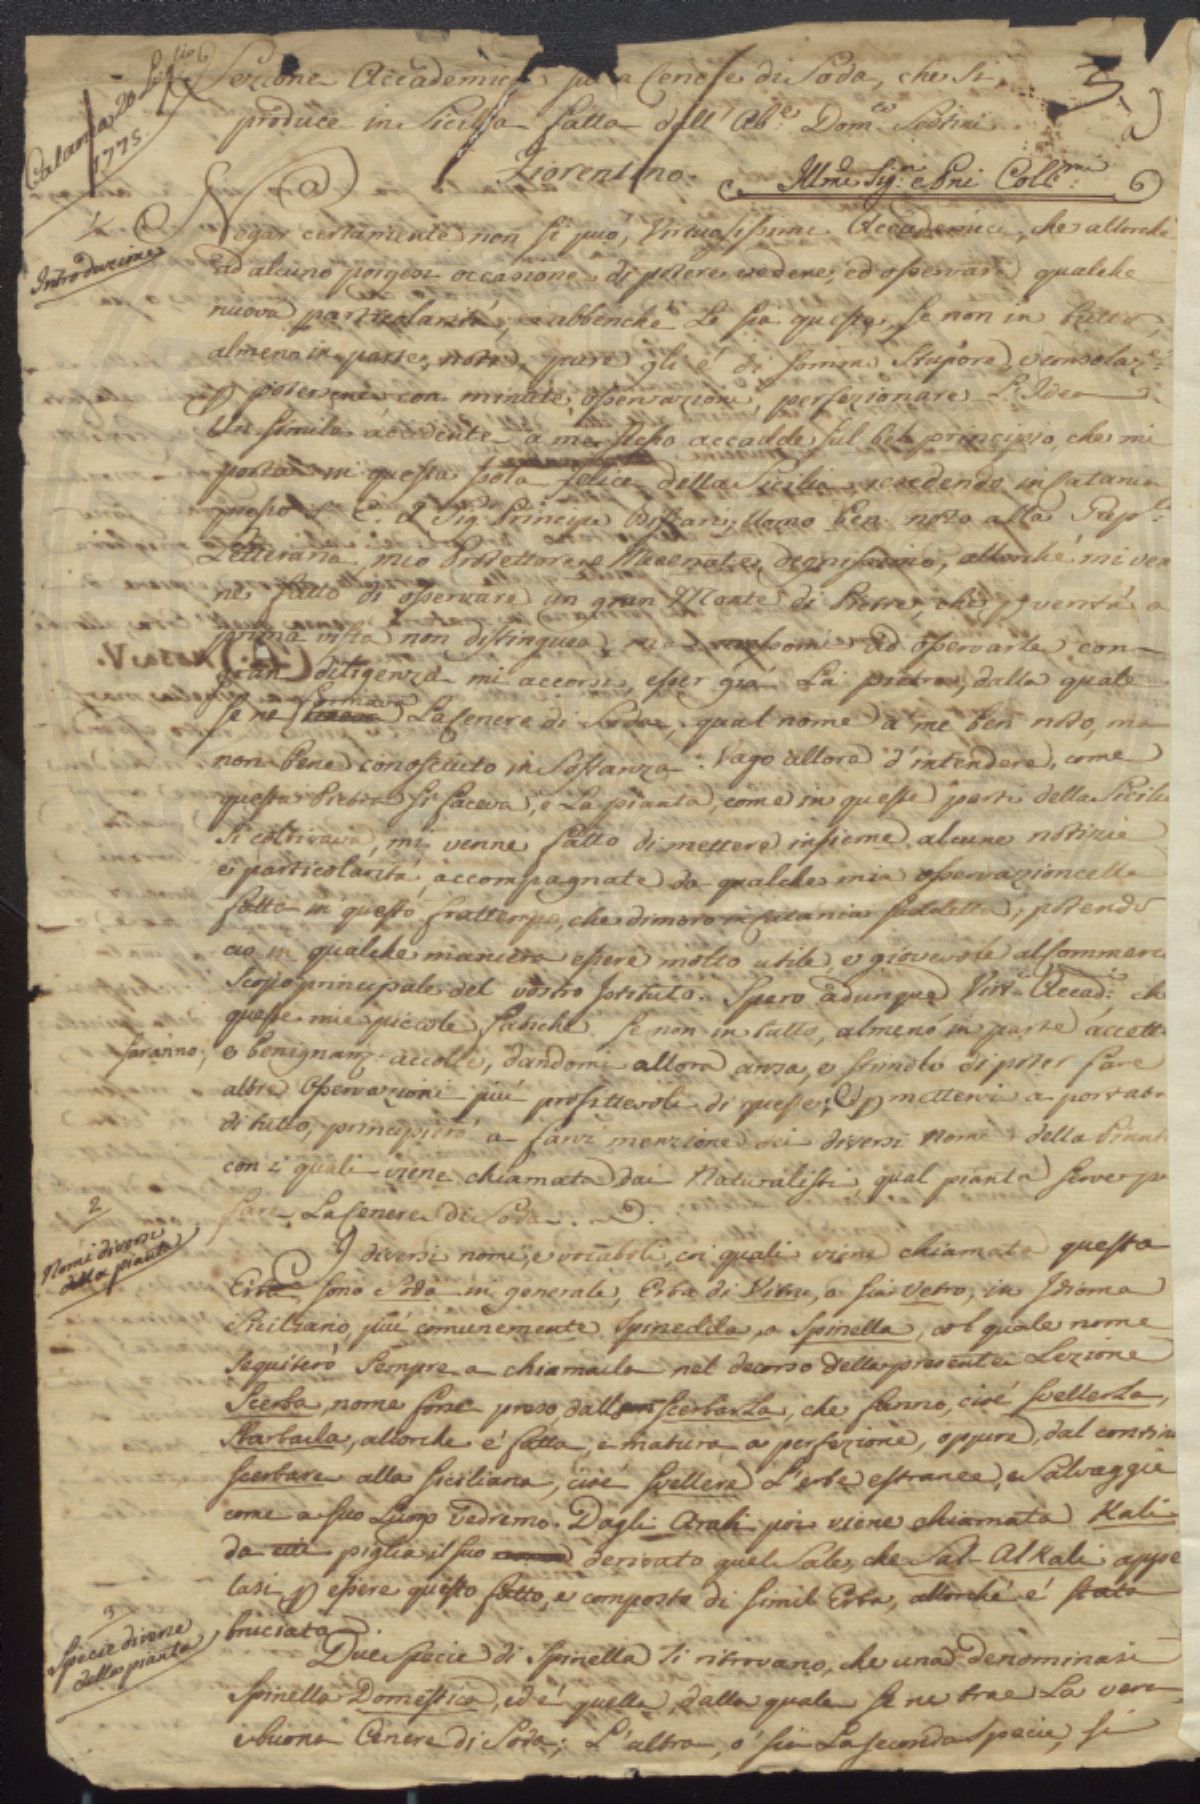 Catania 20 Luglio
1775.
Lezione Accademica su la Cenere di Soda, che si
produce in Sicilia fatta dall' Ab.e Dom.co Sestini
Fiorentino.
Illmi Sig.ri e Pni Coll.mi
1
Introduzione
Negar certamente non si può, Virtuosissimi Accademici, che allorchè
ad alcuno porgesi occasione di potere vedere, ed osservare qualche
nuova particolarità, e abbenchè Le sia questa, se non in tutto,
almeno in parte, nota, pure gli è di somma Stupore, e consolaz.e
p potersene con minute osservazioni, perfezionare L'Idea
Un simile accidente a me stesso accadde sul bel principio, che mi
portai in questa Isola felice della Sicilia, risedendo in Catania
S. E. il Sig. Principe Biscari, Uomo ben noto alla Rep.ca
Letteraria, mio Protettore e Mecenate degnissimo, allorchè mi ven
ne fatto di osservare un gran Monte di Pietre, che p verità a
prima vista non distinguea, ma ad osservarle con
gran diligenza mi accorsi, esser già La pietra, dalla quale
se ne formava La Cenere di Soda, qual nome a me ben noto, ma
non bene conosciuto in Sostanza. Vago allora d'intendere, come
questa Pietra si faceva, e La pianta, come in queste parti della Sicilia
si coltivava, mi venne fatto di mettere insieme alcune notizie
e particolarità, accompagnate da qualche mia osservazioncella
fatta in questo frattempo, che dimoro in Catania suddetta, potendo
ciò in qualche maniera essere molto utile, e giovevole al Commerci
Scopo principale del vostro Istituto. Spero adunque Virt. Accad.ci ch
queste mie piccole fatiche se non in tutto, almeno in parte accett
saranno, e benignam. accolte, dandomi allora ansa, e stimolo di poter fare
altre Osservazioni più profittevoli di queste; E p mettervi a portata
di tutto, principierò a farvi menzione dei diversi Nomi della Piant
con i quali viene chiamata dai Naturalisti, qual pianta serve p
fare La Cenere di Soda.
2
Nomi diversi
della pianta
I diversi nomi, e vocaboli, coi quali viene chiamata questa
Erba sono Soda in generale, Erba di Vitru, o sia Vetro, in Idioma
Siciliano, più comunemente Spinedda, o Spinella, col quale nome
Seguiterò Sempre a chiamarla nel decorso della presente Lezione
Scerba, nome forse preso, dall Scerbarla, che fanno, cioè Svellerla,
Sbarbarla, allorchè è fatta, e matura a perfezione, oppure, dal continu
scerbare alla Siciliana, cioè Svellere L'erbe estranee, e Salvaggie
come a suo Luogo Vedremo. Dagli Arabi poi viene chiamata Kali
da piglia il suo derivato quel Sale, che Sal-Alkali appe
lasi p essere questo fatto, e composto di simil Erba, allorchè è stata
bruciata
3
Specie diverse
della pianta
Due specie di Spinella si ritrovano, che una denominasi
Spinella Domestica, ed è quella, dalla quale se ne trae La vera
e buona Cenere di Soda; L'altra, o sia La Seconda Specie, si